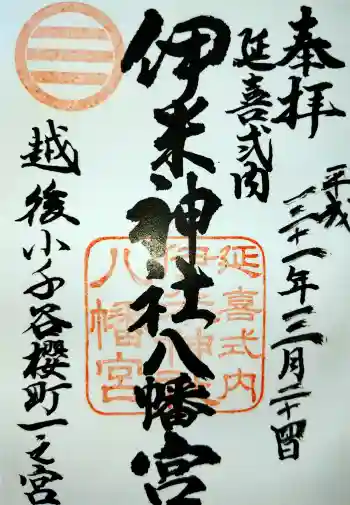 奉拝
平成三十一年三月二十四日
延喜式内
伊米神社八幡宮
越後小千谷櫻町一之宮
延喜式内
伊米神社
八幡宮